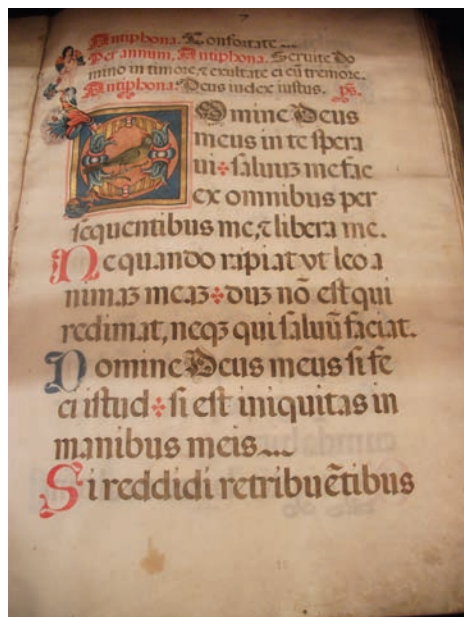 7
Antiphona. Confortate ...
Per annum. Antiphona. Seruite Do
mino in timore, ⁊ exultate ei cū tremore.
Antiphona. Deus iudex iustus. ps.
Domine Deus
meus in te spera
ui ✢ saluuꝫ me fac
ex omnibus per
sequentibus me, ⁊ libera me.
Nequando rapiat vt leo a
nimaꝫ meaꝫ ✢ duꝫ nō est qui
redimat, neqꝫ qui saluū faciat.
Domine Deus meus si fe
ci istud ✢ si est iniquitas in
manibus meis...
Si reddidi retribuētibus